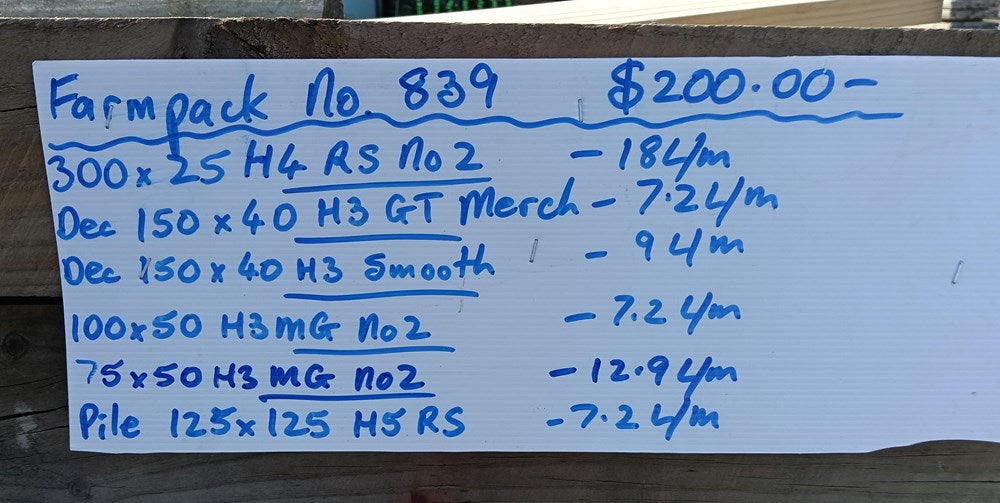 Farmpack No. 839 $200.00-
300x25 H4 RS No2 - 18 L/m
Dec 150x40 H3 GT Merch - 7.2 L/m
Dec 150x40 H3 Smooth - 9 L/m
100x50 H3 MG No2 - 7.2 L/m
75x50 H3 MG No2 - 12.9 L/m
Pile 125x125 H5 RS - 7.2 L/m